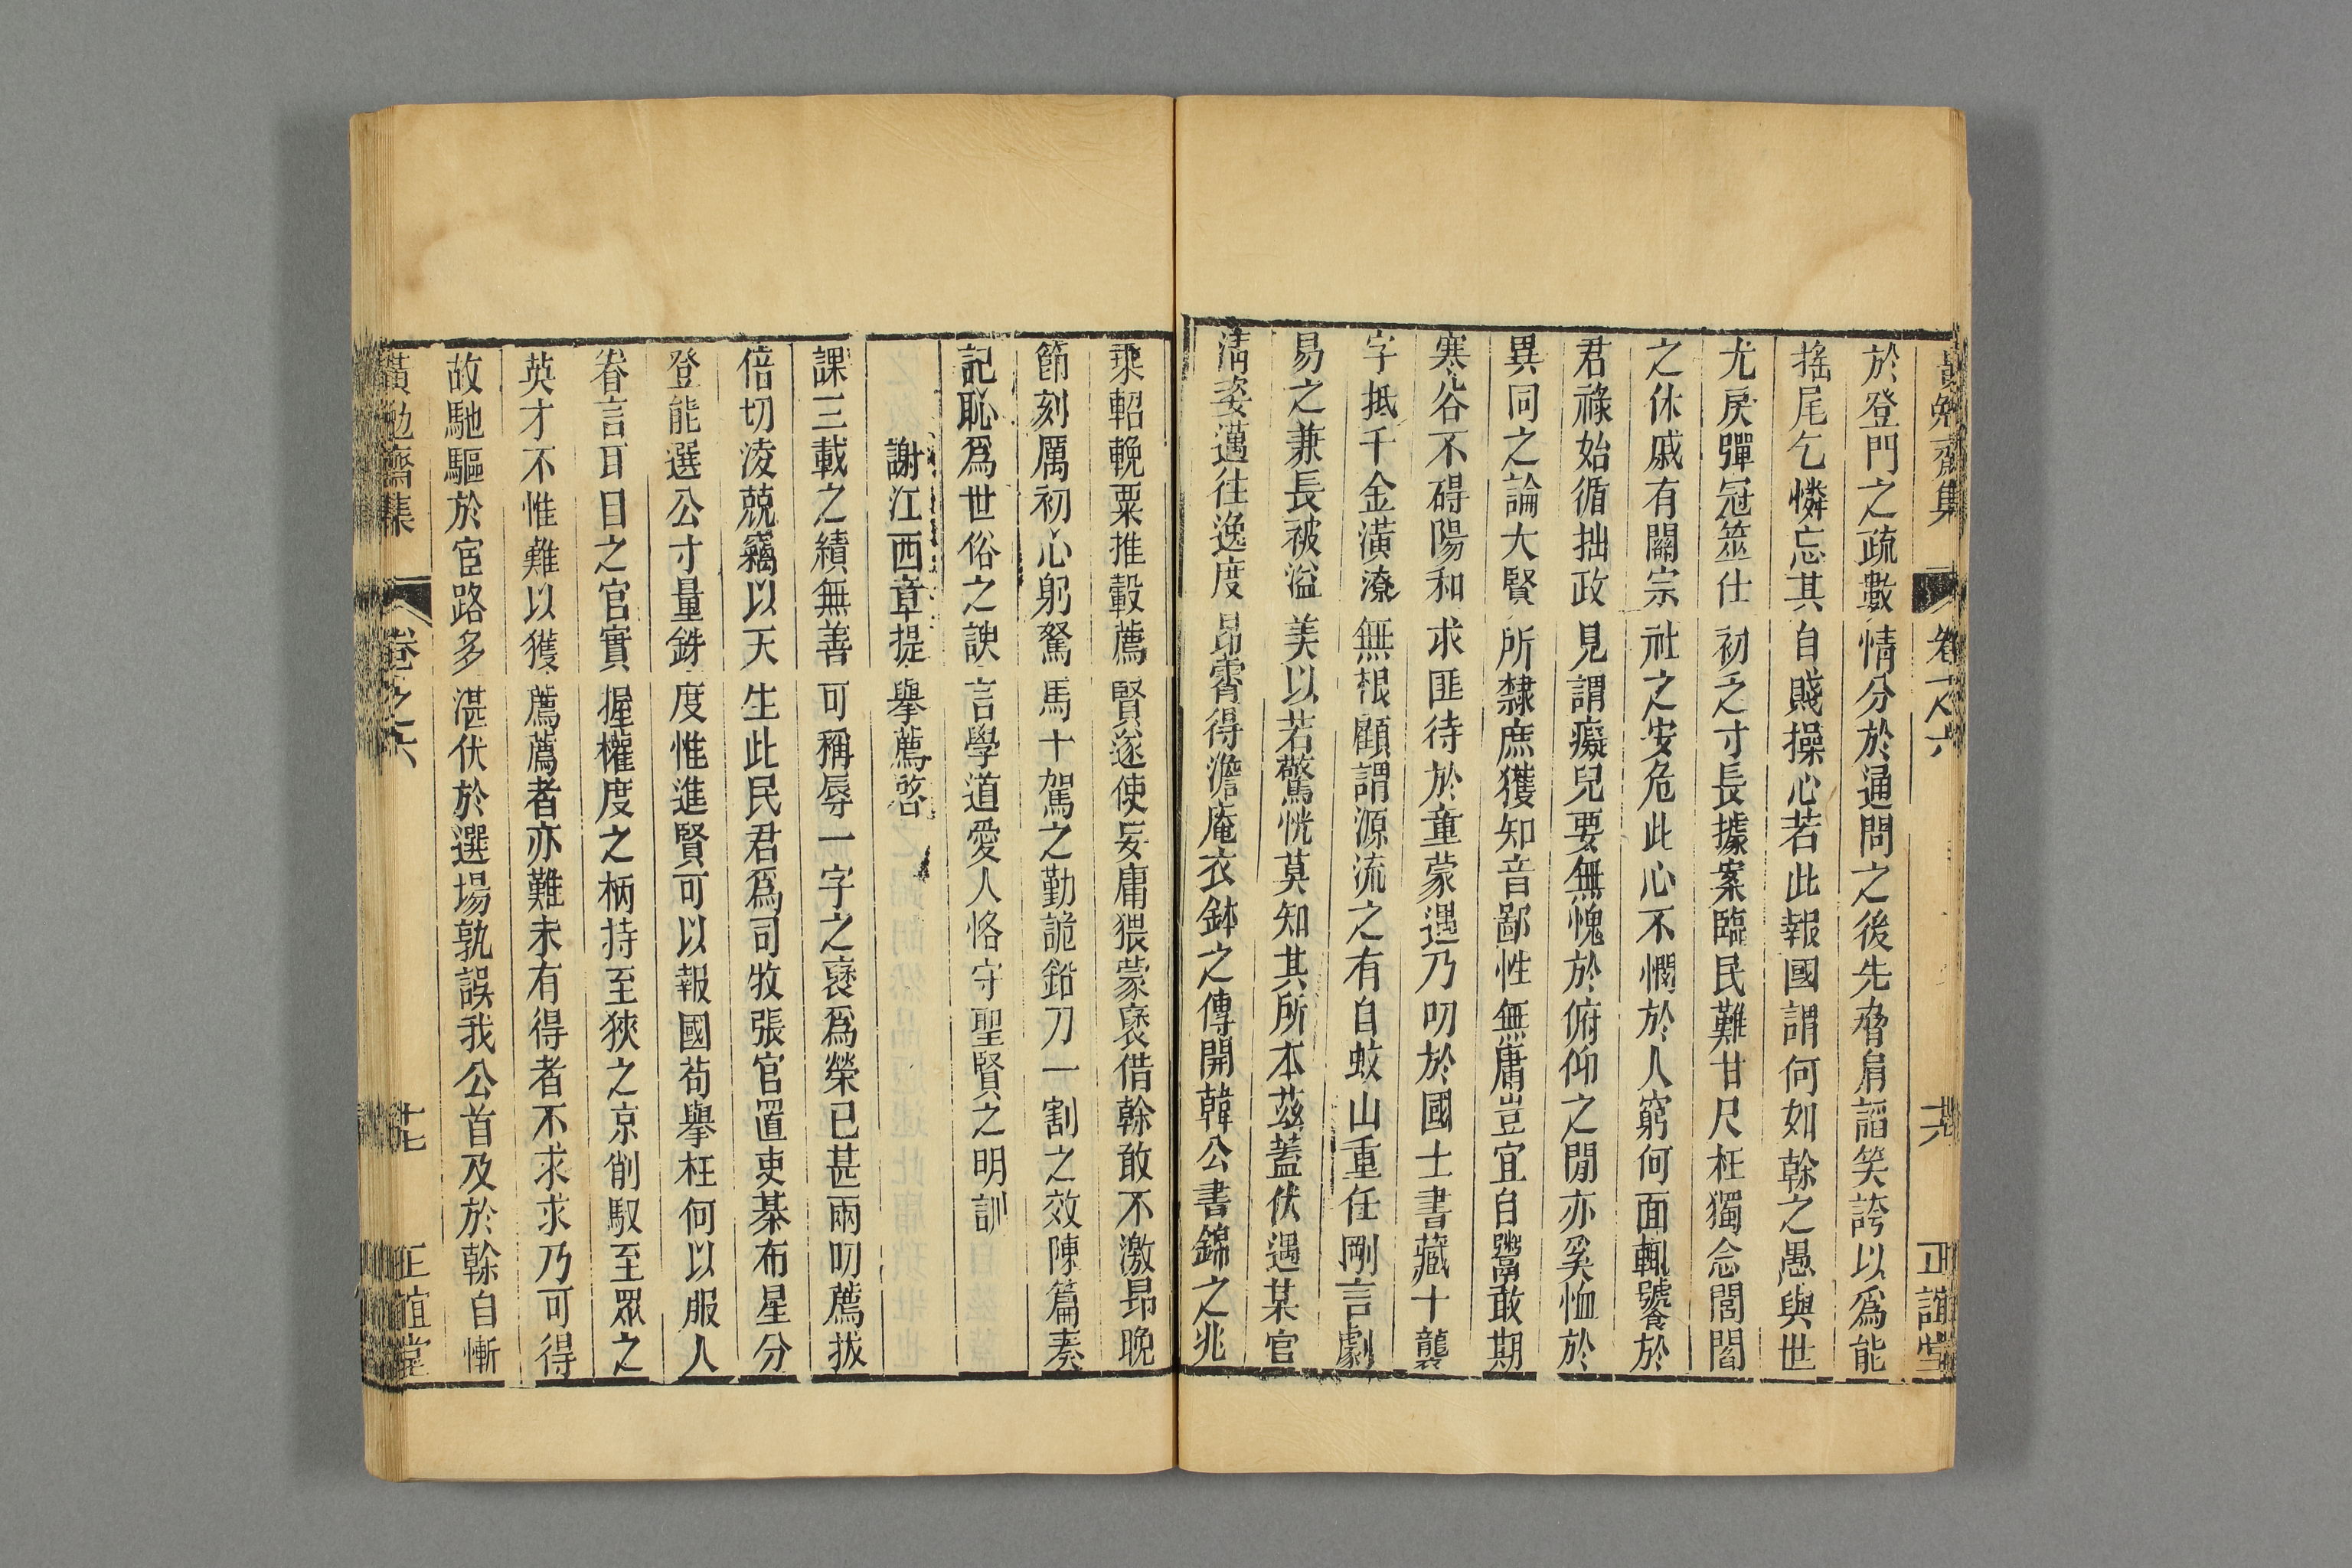 黃勉齋集 卷之六 六 正誼堂
於登門之疏數情分於通問之後先脅肩謟笑誇以爲能
搖尾乞憐忘其自賤操心若此報國謂何如榦之愚與世
尤戾彈冠筮仕初乏寸長據案臨民難甘尺枉獨念閭閻
之休戚有關宗社之安危此心不憫於人窮何面輒號餮於
君祿始循拙政見謂癡兒要無愧於俯仰之閒亦奚恤於
異同之論大賢所隸庶獲知音鄙性無庸豈宜自鬻敢期
寒谷不碍陽和求匪待於童蒙遇乃叨於國士書藏十襲
字抵千金潢潦無根顧謂源流之有自蚊山重任剛言劇
易之兼長被溢美以若驚恍莫知其所本茲蓋伏遇某官
淸姿邁往逸度昂霄得澹庵衣鉢之傳開韓公書錦之兆
乘軺輓粟推轂薦賢遂使妄庸猥蒙褒借榦敢不激昂晚
節刻厲初心躬駑馬十駕之勤詭鉛刀一割之效陳篇奏
記恥爲世俗之諛言學道愛人恪守聖賢之明訓
謝江西章提舉薦啓
課三載之績無善可稱辱一字之襃爲榮已甚兩叨薦拔
倍切淩兢竊以天生此民君爲司牧張官置吏棊布星分
登能選公寸量銖度惟進賢可以報國苟舉枉何以服人
眷言耳目之官實握權度之柄持至狹之京削馭至眾之
英才不惟難以獲薦薦者亦難未有得者不求求乃可得
故馳驅於宦路多湛伏於選場孰誤我公首及於榦自慚
黃勉齋集 卷之六 七 正誼堂